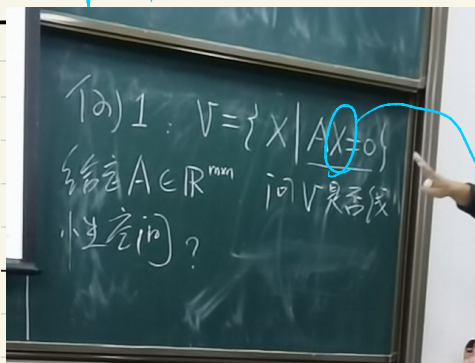 例1：V={X|AX=0}
给定A∈ℝᵐˣⁿ 问V是否线
性空间？